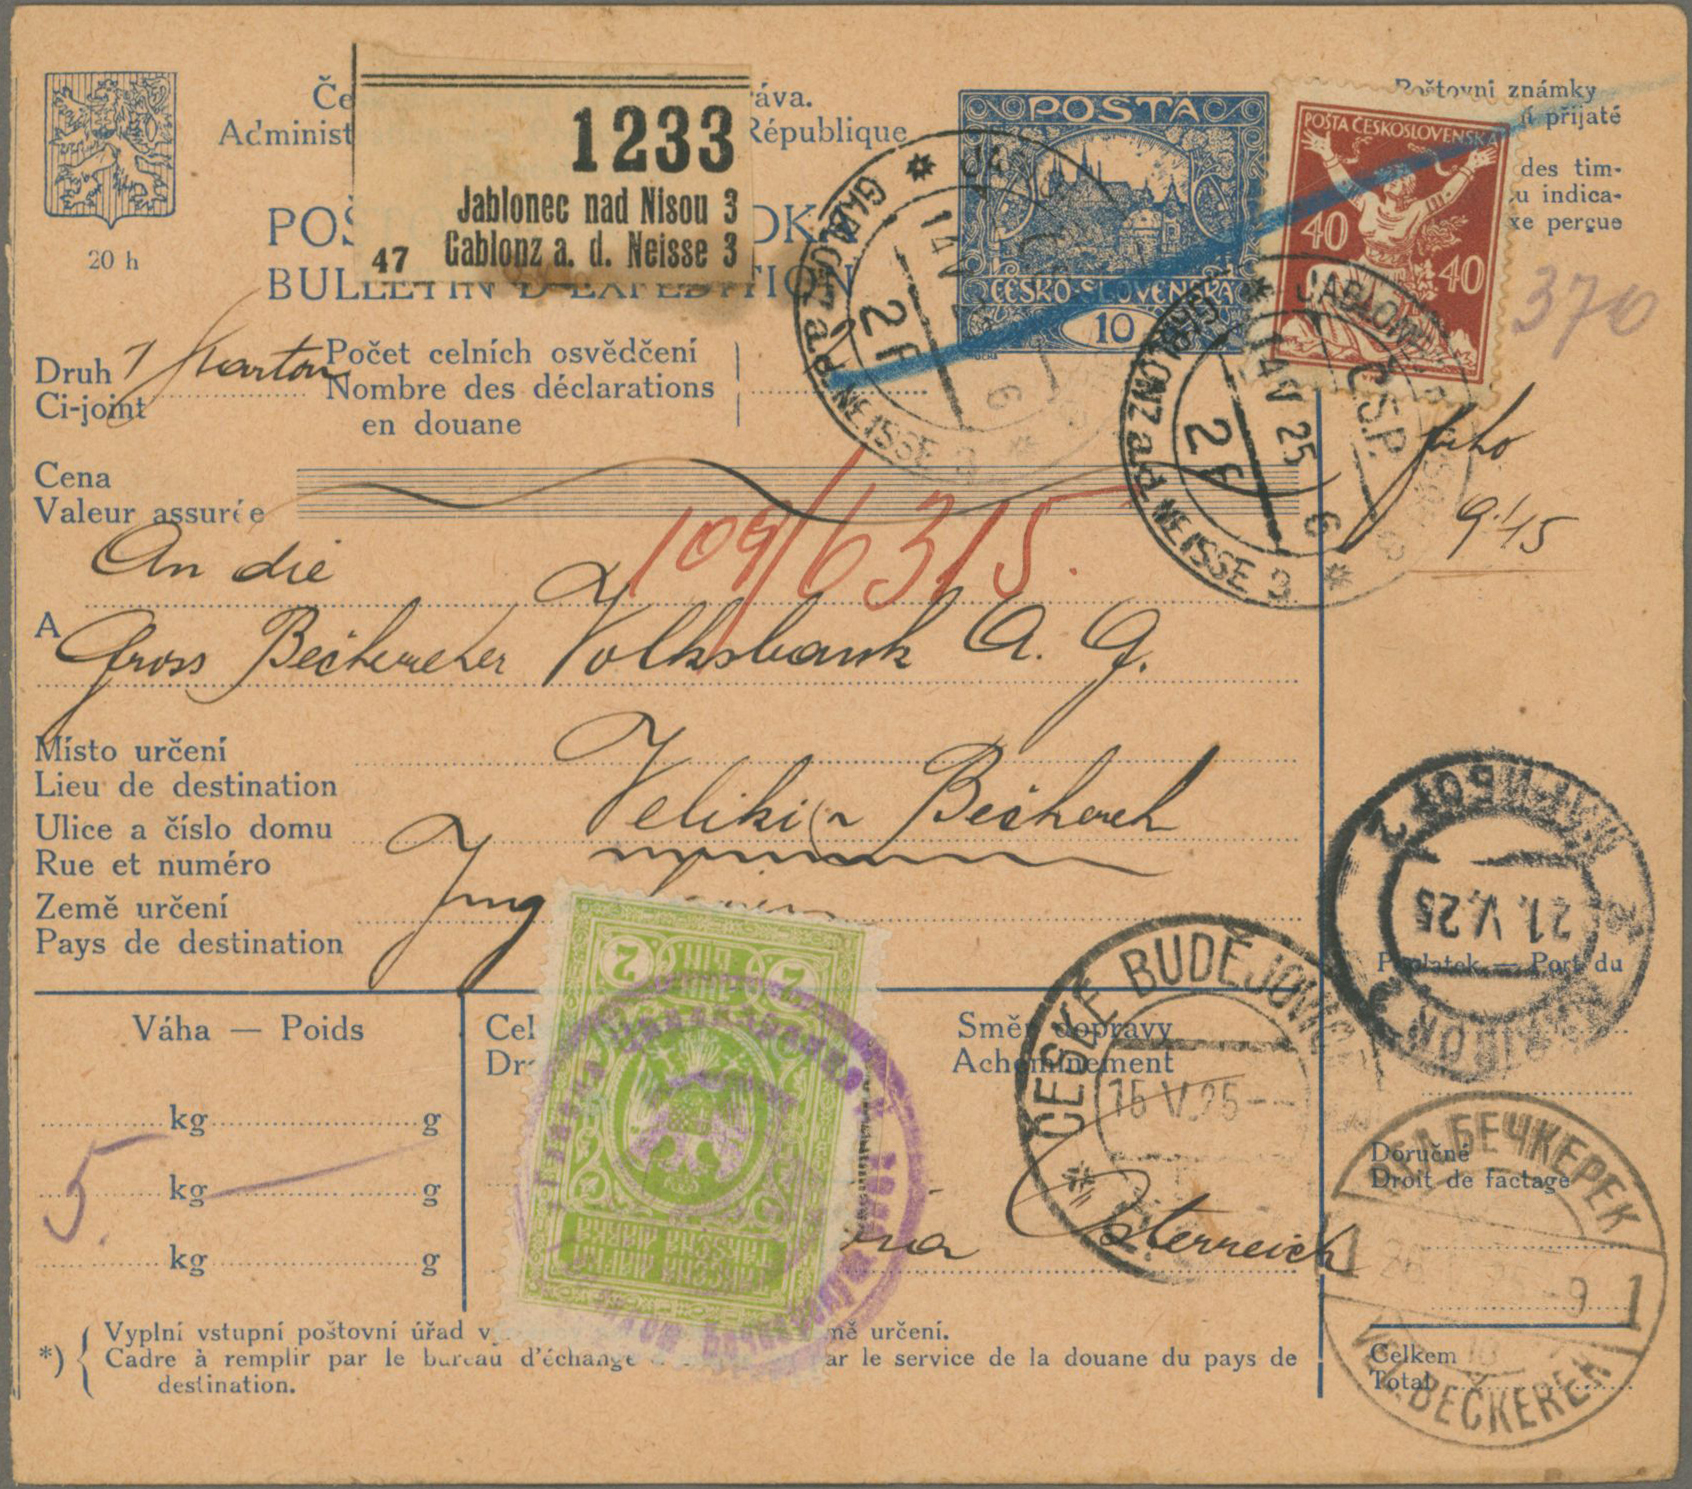 1233
Jablonec nad Nisou 3
47 Gablonz a. d. Neisse 3
Če áva.
Administ République
POŠ OK
BULLETIN D'EXPÉDITION
20 h
POŠTA
ČESKO-SLOVENSKÁ
10
POŠTA ČESKOSLOVENSKÁ
40 40
Poštovní známky
přijaté
des tim-
u indica-
xe perçue
370
Druh 1 Karton
Ci-joint
Počet celních osvědčení
Nombre des déclarations
en douane
GABLONZ a.d. NEISSE 3
14 V
2f
6
JABLONEC
Č.S.P.
GABLONZ a.d. NEISSE 3
14 V 25
2f
6
9.45
Cena
Valeur assurée
109/6315.
An die
A Gross Bečkereker Volksbank A. G.
Místo určení
Lieu de destination
Veliki Bečkerek
Ulice a číslo domu
Rue et numéro
Země určení
Pays de destination
Jug
21. V. 25
Poplatek — Port du
Váha — Poids
Cel
Dr
Směr dopravy
Acheminement
ČESKÉ BUDĚJOVICE
16 V.25
kg g
5 kg g
kg g
2 2
ДИН. DIN.
ТАКСЕНА МАРКА
TAKSENA MARKA
Österreich
Doručné
Droit de factage
БЕЧКЕРЕК
1 1
9
VEL. BEČKEREK
Celkem
Total
*) { Vyplní vstupní poštovní úřad v mě určení.
Cadre à remplir par le bureau d'échange ar le service de la douane du pays de
destination.